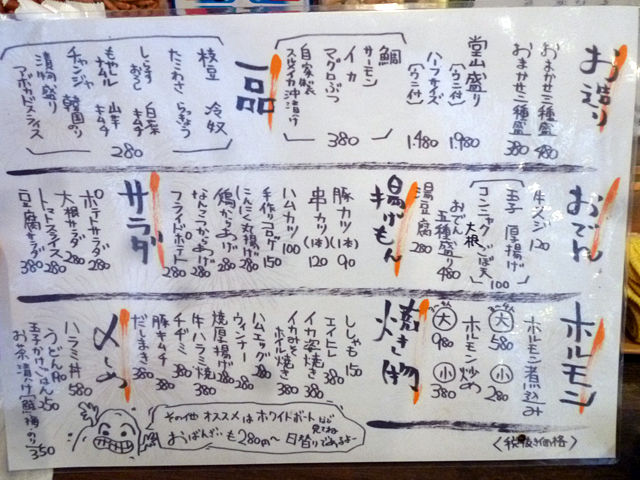 お造り
おまかせ三種盛 480
おまかせ二種盛 380
堂山盛り(ウニ付) 1.980
ハーフサイズ(ウニ付) 1.480
鯛
サーモン
イカ
マグロぶつ
自家製スルメイカ沖漬け
380
一品
枝豆
冷奴
たこわさ
らっきょう
しらすおろし
白菜キムチ
もやしナムル
山芋キムチ
チャンジャ
韓国のり
漬物盛り
アボカドスライス
280
おでん
牛スジ 120
玉子
厚揚げ
コンニャク
ごぼ天
大根
100
おでん五種盛り 480
湯豆腐 280
揚げもん
豚カツ(1本) 90
串カツ(1本) 120
ハムカツ 100
手作りコロッケ 150
にんにく丸揚げ 280
鶏からあげ 280
なんこつからあげ 280
フライドポテト 280
サラダ
ポテトサラダ 280
大根サラダ 280
トマトスライス 380
豆腐サラダ 380
ホルモン
ホルモン煮込み
大 580
小 280
ホルモン炒め
大 980
小 380
焼き物
ししゃも 150
エイヒレ 380
イカ姿焼き 380
イカみそホイル焼き 380
ハムエッグ 280
ウィンナー 280
焼厚揚げ 280
牛ハラミ焼き 380
チヂミ 380
豚キムチ 380
だしまき 380
〆しめ
ハラミ丼 580
うどん 350
玉子かけごはん 250
お茶漬け[鮭・梅・のり] 350
その他オススメはホワイトボード見てね
おばんざいも280円〜日替りであるよー
<税抜き価格>